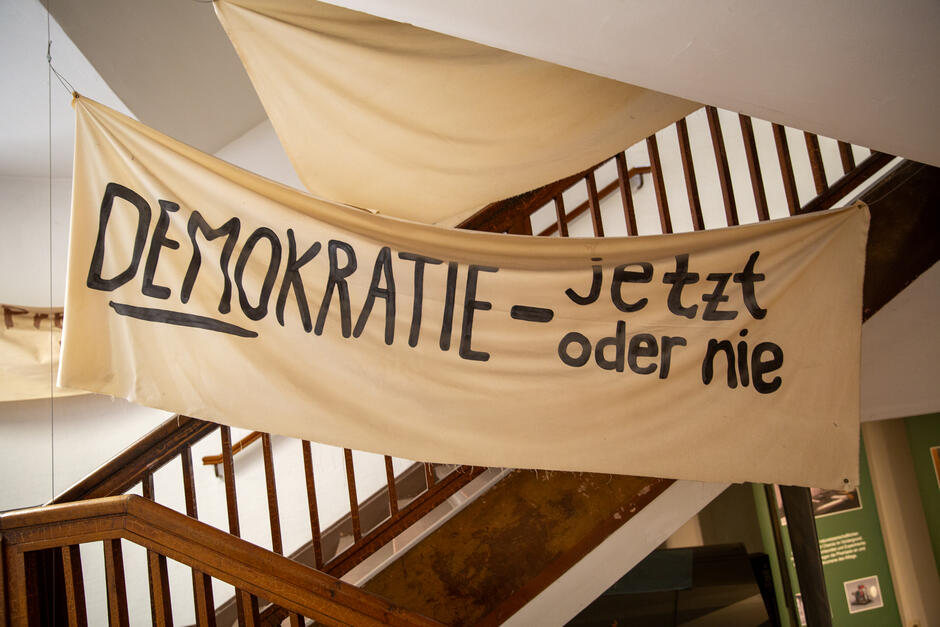 DEMOKRATIE – jetzt
oder nie